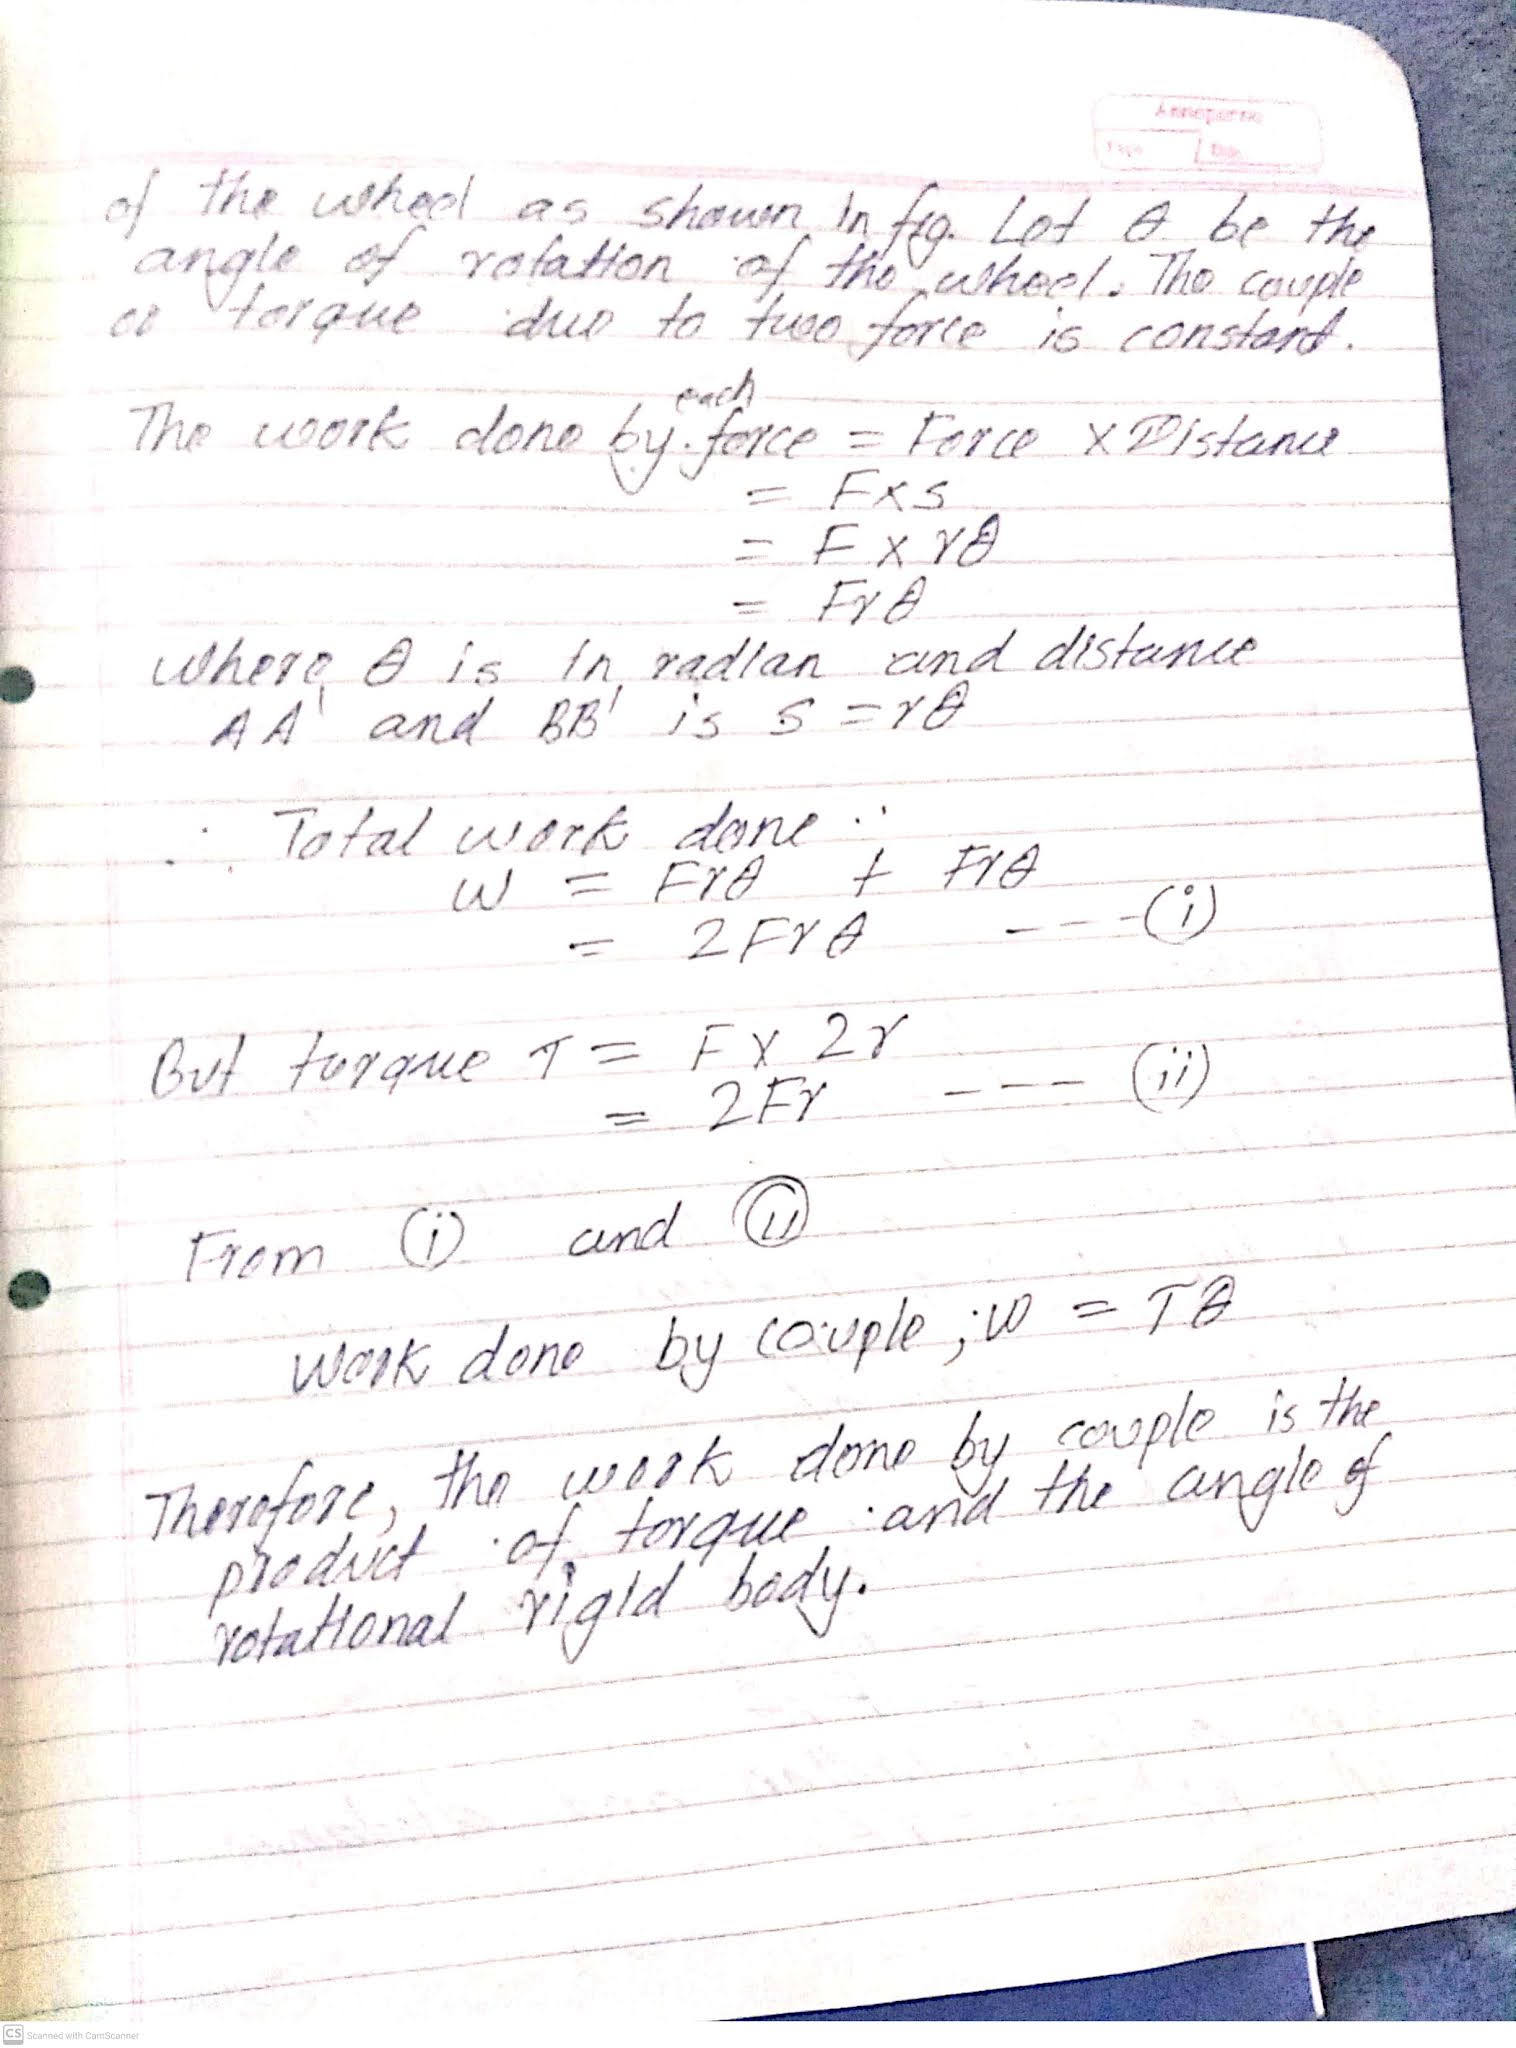 of the wheel as shown in fig. Let θ be the
angle of rotation of the wheel. The couple
or torque due to two force is constant.
each
The work done by force = Force × Distance
= F×s
= F × rθ
= Frθ
where θ is in radian and distance
AA' and BB' is S = rθ
∴ Total work done :
W = Frθ + Frθ
= 2Frθ ---(i)
But torque T = F × 2r
= 2Fr --- (ii)
From (i) and (ii)
Work done by couple ; W = Tθ
Therefore, the work done by couple is the
product of torque and the angle of
rotational rigid body.
CS Scanned with CamScanner